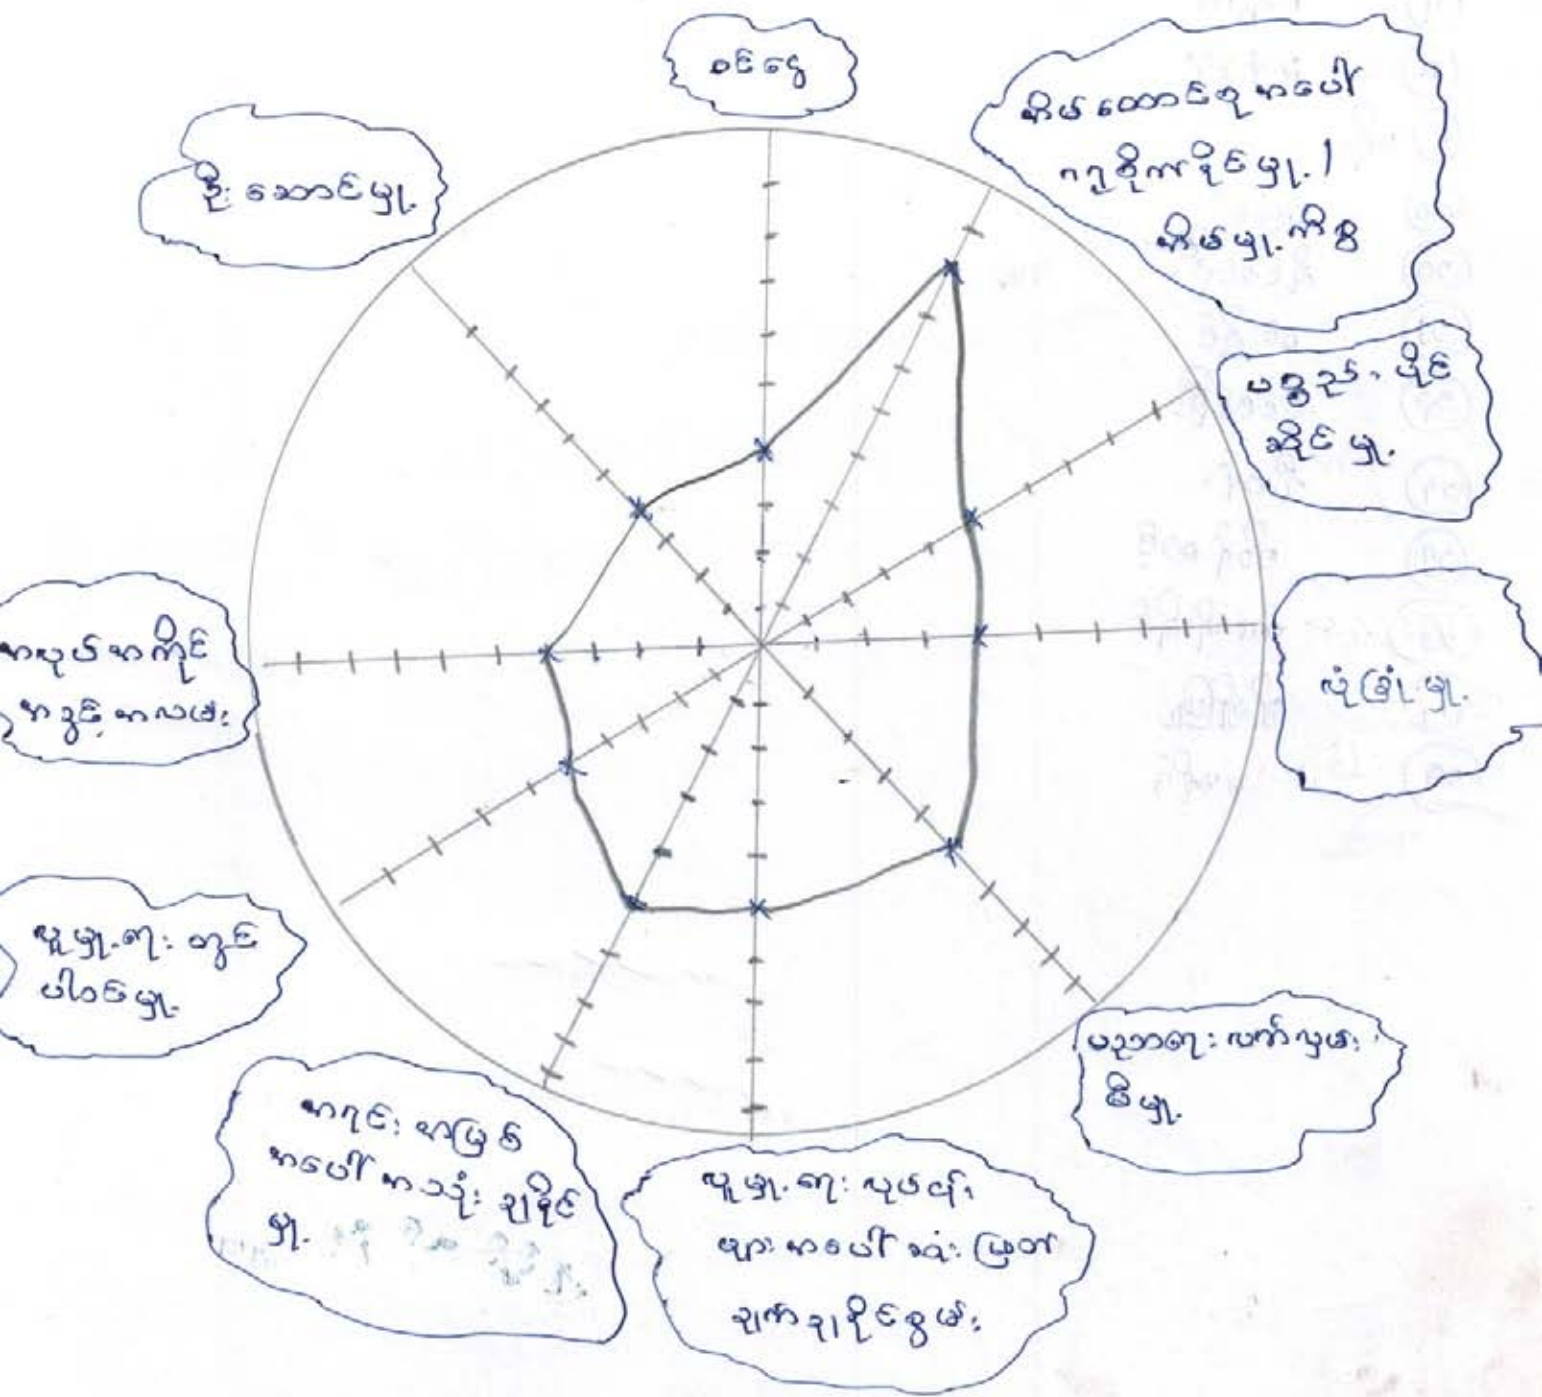 စင်ငွေ
အိမ်ထောင်စု အပေါ်
ဂရုစိုက်နိုင်မှု /
အိမ်မှုကိစ္စ
ပစ္စည်း ပိုင်
ဆိုင်မှု
လုံခြုံမှု
ပညာရေး လက်လှမ်း
မီမှု
လူမှုရေး လုပ်ငန်း
များ အပေါ် ဆုံးဖြတ်
ချက်ချနိုင်စွမ်း
အရင်းအမြစ်
အပေါ် အသုံးချနိုင်
မှု
လူမှုရေး တွင်
ပါဝင်မှု
အလုပ်အကိုင်
အခွင့်အလမ်း
ဦးဆောင်မှု